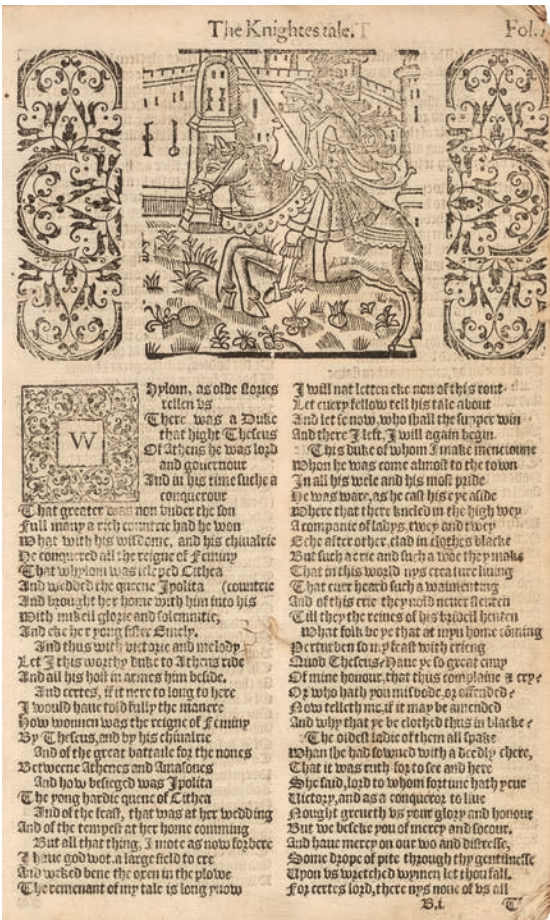 The Knightes tale.
Fol.
W
Hylom, as olde stories
tellen vs
There was a Duke
that hight Theseus
Of Athens he was lord
and gouernour
And in his time suche a
conquerour
That greater was non vnder the son
Full many a rich countrie had he won
What with his wisdome, and his chiualrie
He conquered all the reigne of Feminy
That whylom was icleped Cithea
And wedded the queene Ipolita (countrie
And brought her home with him into his
With mikell glorie and solemnitie,
And eke her yong sister Emely.
And thus with victorie and melody
Let I this worthy duke to Athens ride
And all his host in armes him beside.
And certes, if it nere to long to here
I would haue told fully the manere
How wonnen was the reigne of Feminy
By Theseus, and by his chiualrie
And of the great battaile for the nones
Betweene Athenes and Amasones
And how besieged was Ipolita
The yong hardie quene of Cithea
And of the feast, that was at her wedding
And of the tempest at her home comming
But all that thing, I mote as now forbere
I haue god wot, a large field to ere
And weked bene the oxen in the plowe
The remenant of my tale is long ynow
I will nat letten eke non of this rout
Let euery fellow tell his tale about
And let se now, who shall the supper win
And there I left, I will again begin.
This duke of whom I make mencioune
Whon he was come almost to the town
In all his wele and his most pride
He was ware, as he cast his eye aside
Where that there kneled in the high wey
A companie of ladys, twey and twey
Eche after other, clad in clothes blacke
But such a crie and such a woe they make
That in this world nys creature liuing
That euer heard such a waimenting
And of this crie they nold neuer stenten
Till they the reines of his bridell henten
What folk be ye that at myn home cōming
Perturben so my feast with crieng
Quod Theseus? Haue ye so great enuy
Of mine honour, that thus complaine & cry?
Or who hath you misbode, or offended?
Now telleth me, if it may be amended
And why that ye be clothed thus in blacke?
The oldest ladie of them all spake
Whan she had sowned with a deedly chere,
That it was ruth for to see and here
She said, lord to whom fortune hath yeue
Victory, and as a conqueror to liue
Nought greueth vs your glory and honour
But we beseke you of mercy and socour,
And haue mercy on our wo and distresse,
Some drope of pite through thy gentilnesse
Upon vs wretched wymen let thou fall.
For certes lord, there nys none of vs all
B.i.
T